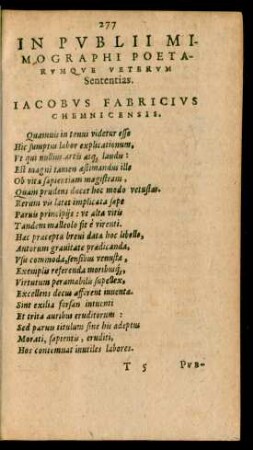 277
IN PVBLII MI-
MOGRAPHI POETA-
RVMQVE VETERVM
Sententias.
IACOBVS FABRICIVS
CHEMNICENSIS.
Quamuis in tenui videtur esse
Hic sumptus labor explicationum,
Vt qui nullius artis atq́, laudis:
Est magni tamen æstimandus ille
Ob vitæ sapientiam magistram,
Quam prudens docet hoc modo vetustas.
Rerum vis latet implicata sæpe
Paruis principijs: vt alta vitis
Tandem malleolo fit è virenti.
Hac præcepta breui data hoc libello,
Autorum grauitate prædicanda,
Vsu commoda, sensibus venusta,
Exemplis referenda moribusq́,
Virtutum peramabilis supellex,
Excellens decus afferent iuuenta.
Sint exilia forsan intuenti
Et trita auribus eruditorum:
Sed paruis titulum sine hic adeptus
Morati, sapientis, eruditi,
Hos contemnat inutiles labores.
T 5 PVB-